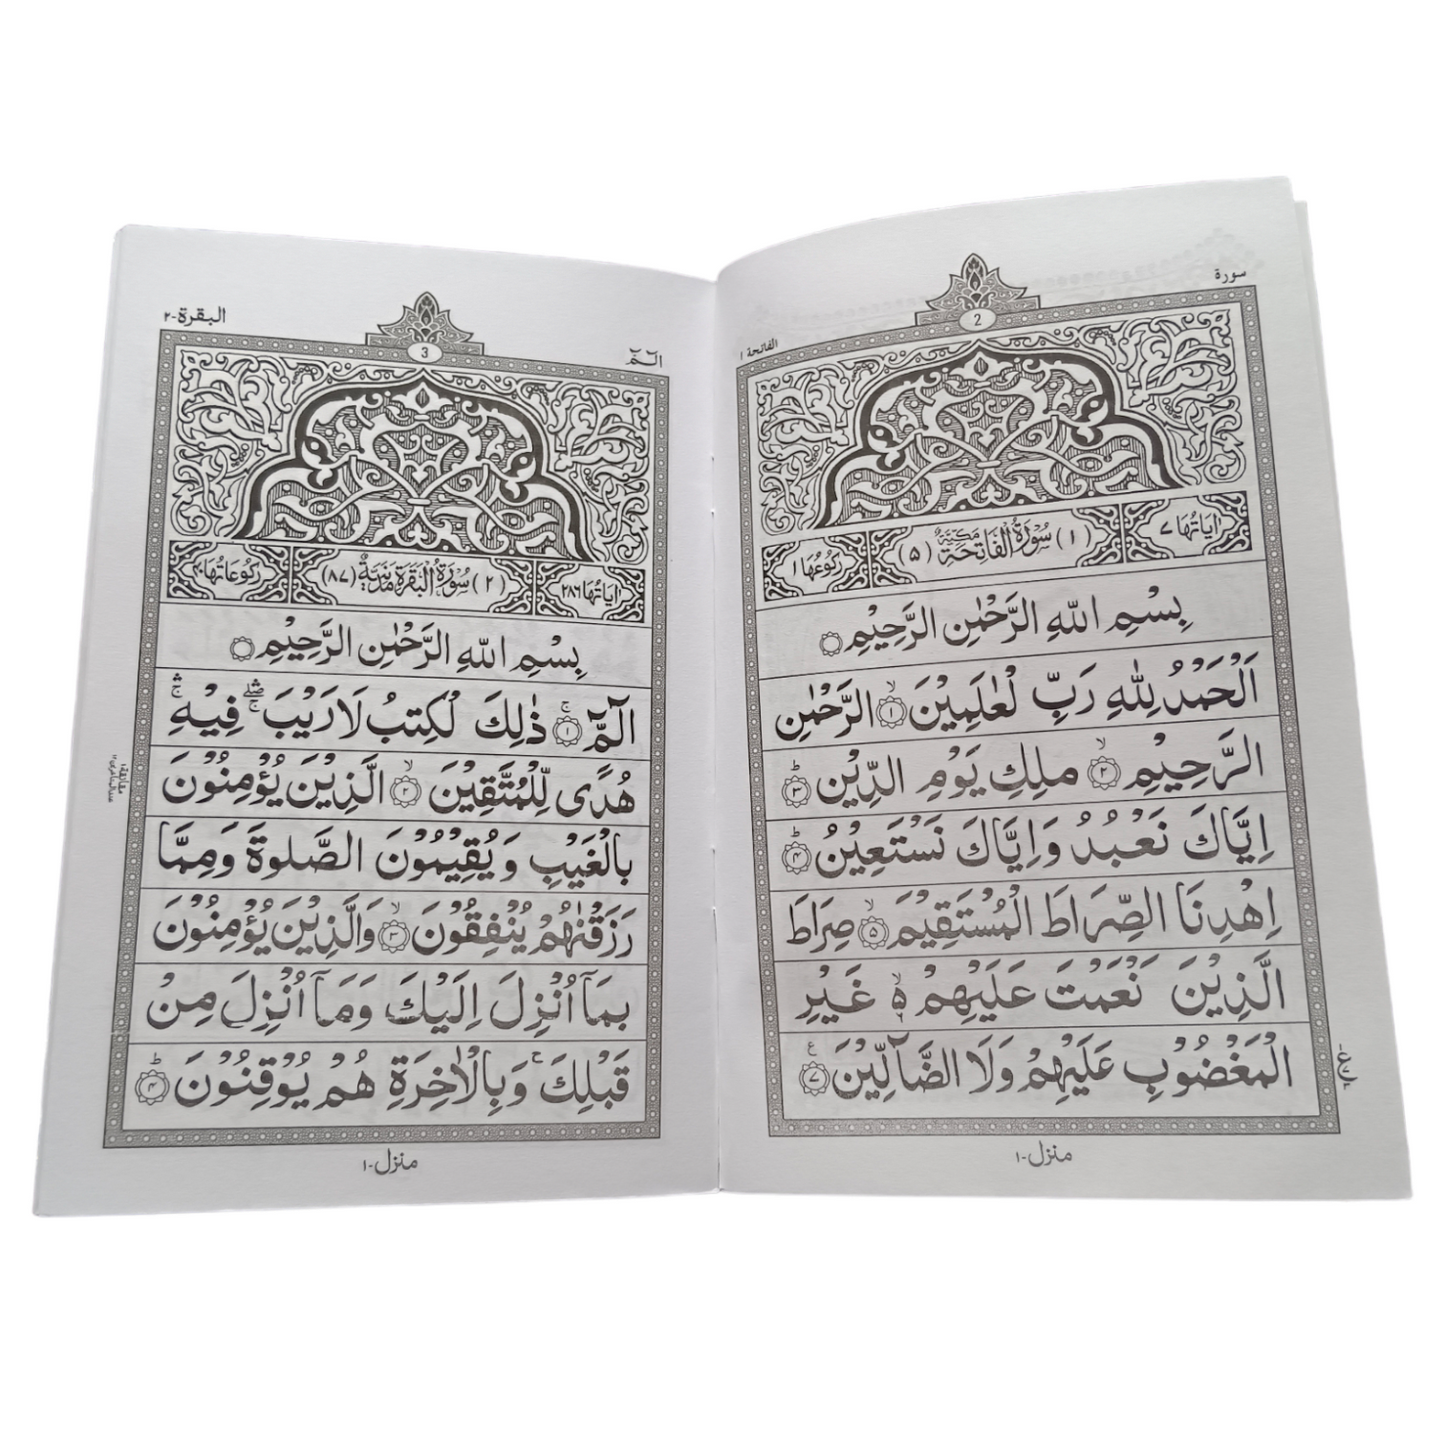 سورة
2
الفاتحة ١
اٰیَاتُهَا ٧
(١) سُوْرَةُ الْفَاتِحَةِ مَكِّيَّةٌ (٥)
رُكُوْعُهَا ١
بِسْمِ اللّٰهِ الرَّحْمٰنِ الرَّحِيْمِ
اَلْحَمْدُ لِلّٰهِ رَبِّ لْعٰلَمِيْنَ ۙ﴿١﴾ الرَّحْمٰنِ
الرَّحِيْمِ ۙ﴿٢﴾ مٰلِكِ يَوْمِ الدِّيْنِ ؕ﴿٣﴾
اِيَّاكَ نَعْبُدُ وَاِيَّاكَ نَسْتَعِيْنُ ؕ﴿۴﴾
اِهْدِنَا الصِّرَاطَ الْمُسْتَقِيْمَ ۙ﴿۵﴾ صِرَاطَ
الَّذِيْنَ نْعَمْتَ عَلَيْهِمْ ۙ۬ۦ غَيْرِ
الْمَغْضُوْبِ عَلَيْهِمْ وَلَا الضَّآلِّيْنَ ﴿٧﴾ ع
منزل-١
الٓمّٓ
3
البقرة-٢
اٰیَاتُهَا ٢٨٦
(٢) سُوْرَةُ الْبَقَرَةِ مَدَنِيَّةٌ (٨٧)
رُكُوْعَاتُهَا ۴٠
بِسْمِ اللّٰهِ الرَّحْمٰنِ الرَّحِيْمِ
الٓمّٓ ۚ﴿١﴾ ذٰلِكَ لْكِتٰبُ لَا رَيْبَ ۖۛۚ فِيْهِ ۛۚ
هُدًى لِّلْمُتَّقِيْنَ ۙ﴿٢﴾ الَّذِيْنَ يُؤْمِنُوْنَ
بِالْغَيْبِ وَيُقِيْمُوْنَ الصَّلٰوةَ وَمِمَّا
رَزَقْنٰهُمْ يُنْفِقُوْنَ ۙ﴿٣﴾ وَالَّذِيْنَ يُؤْمِنُوْنَ
بِمَآ اُنْزِلَ اِلَيْكَ وَمَآ اُنْزِلَ مِنْ
قَبْلِكَ ۚ وَبِالْاٰخِرَةِ هُمْ يُوْقِنُوْنَ ؕ﴿۴﴾
منزل-١